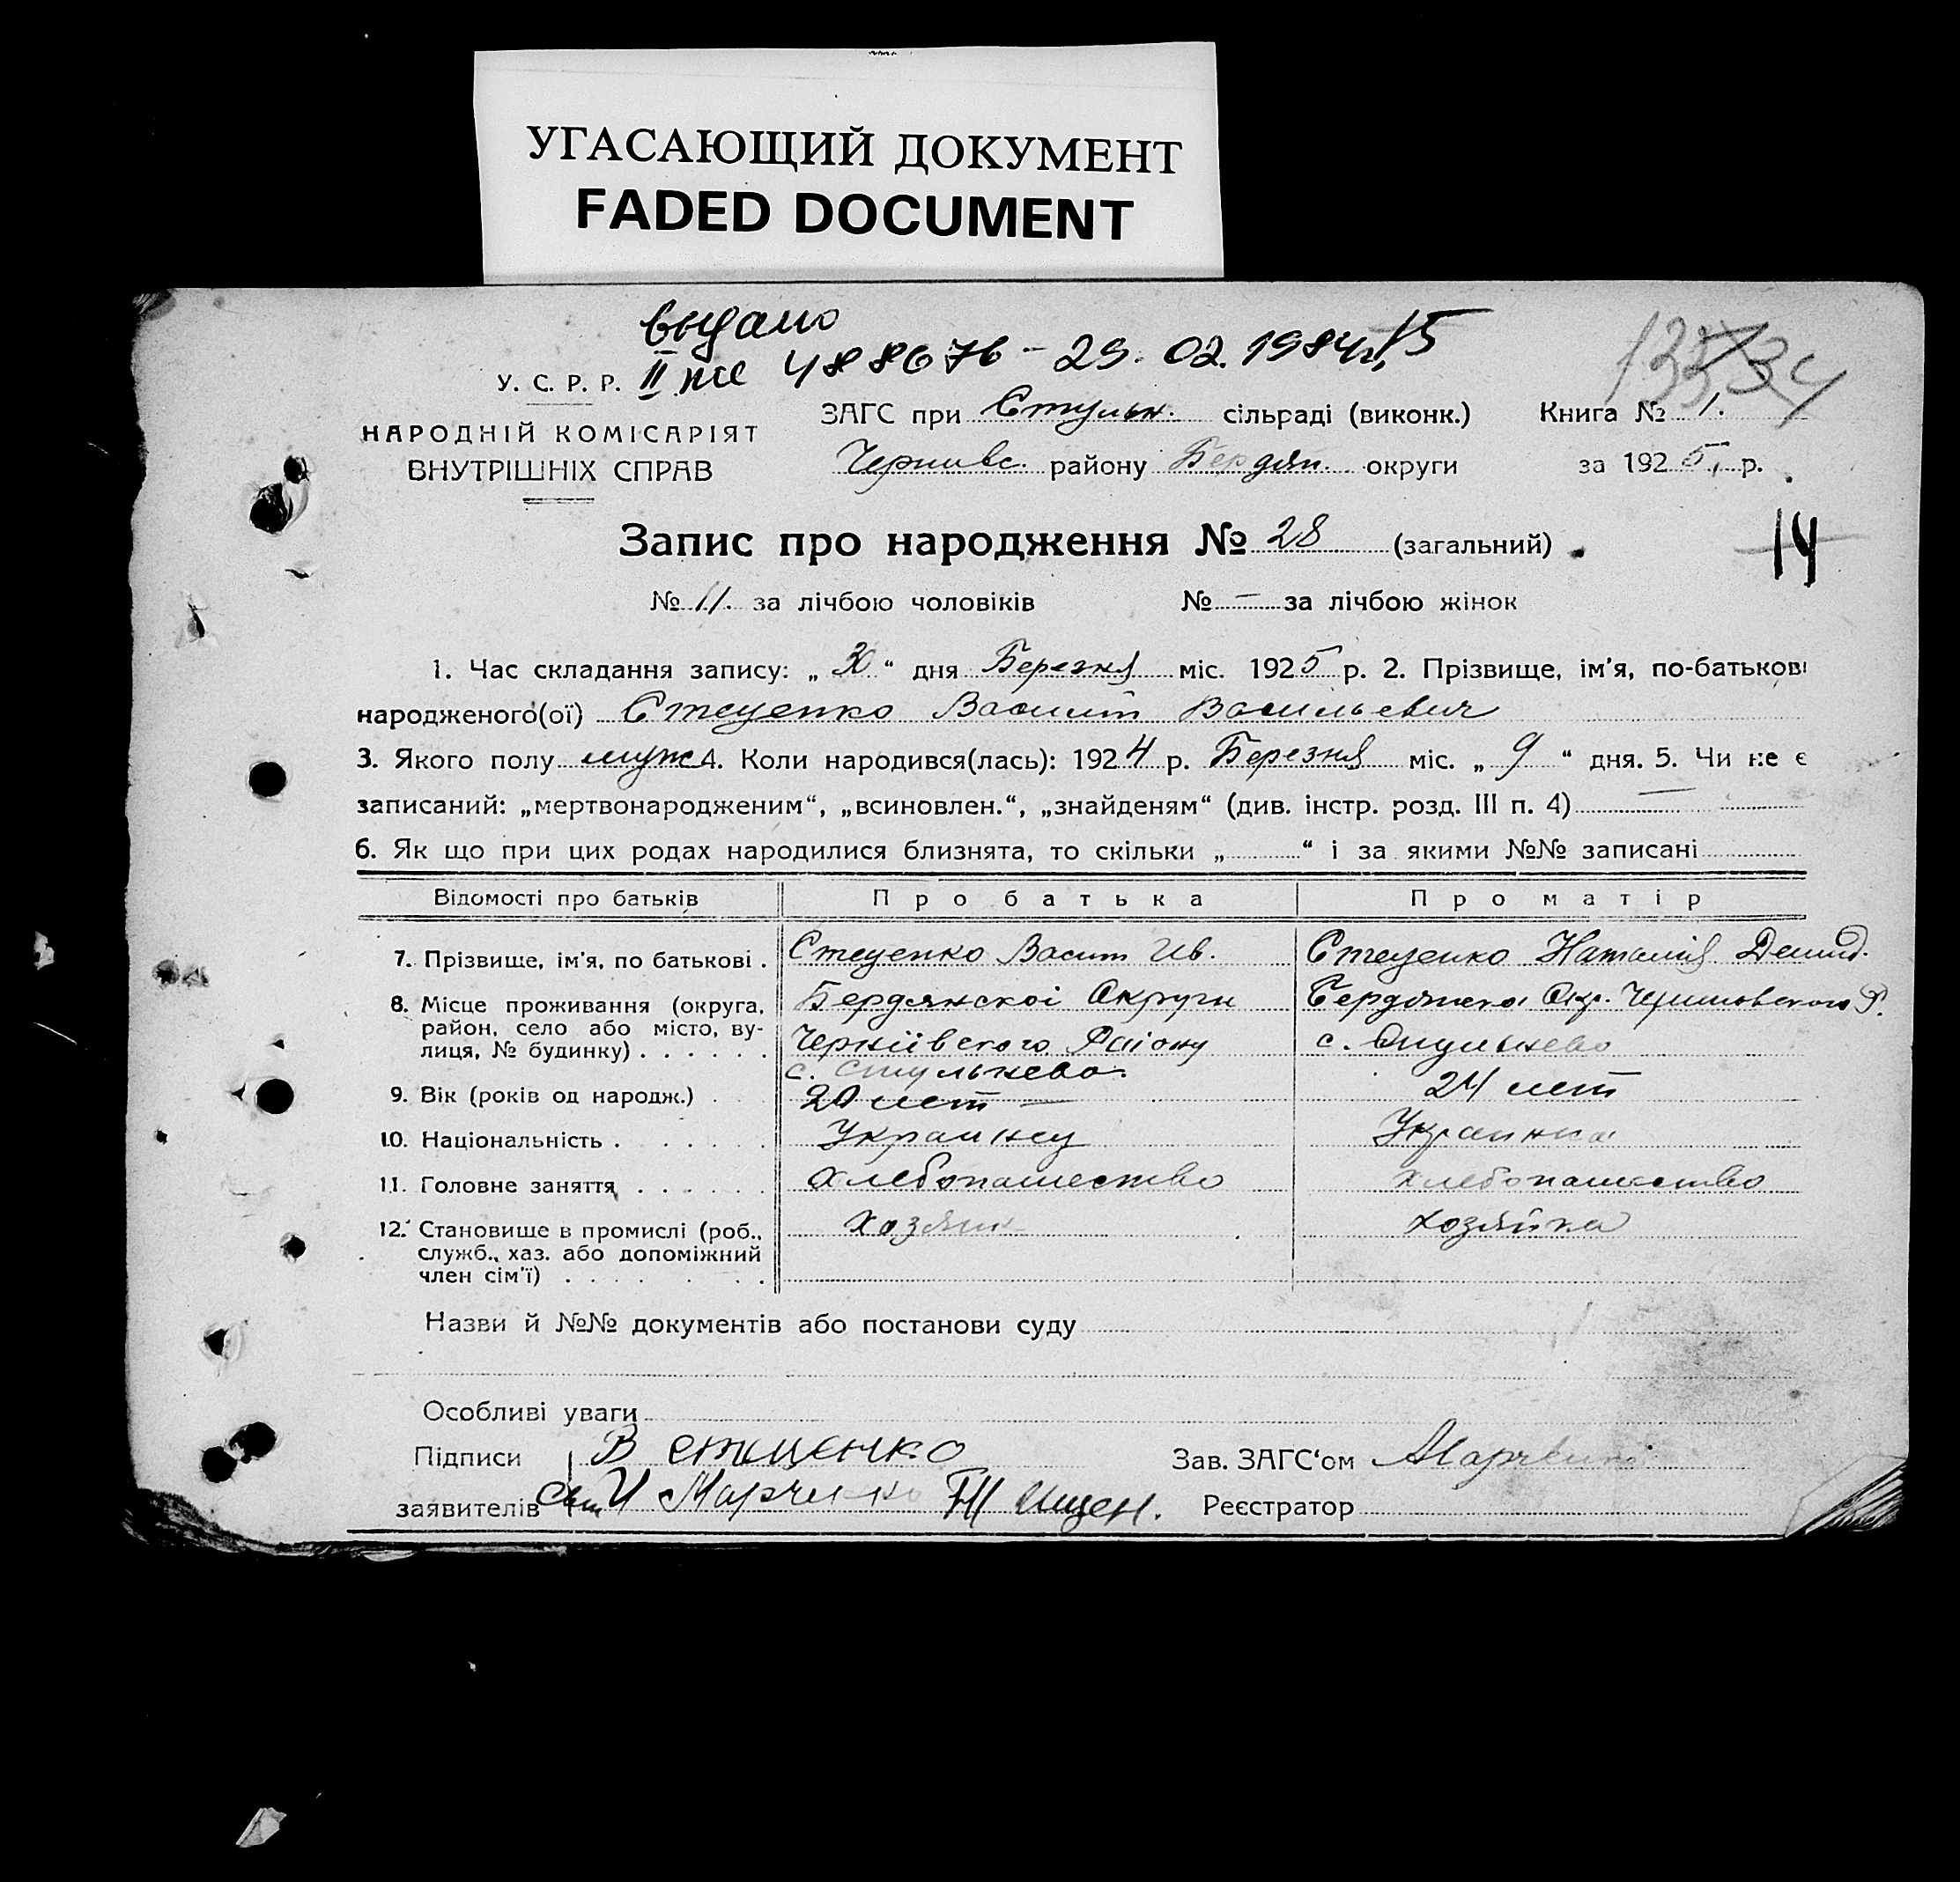 УГАСАЮЩИЙ ДОКУМЕНТ
FADED DOCUMENT
выдано
II ЖС 488676 - 29. 02. 1984г. 15
У. С. Р. Р.
НАРОДНІЙ КОМІСАРІЯТ
ВНУТРІШНІХ СПРАВ
ЗАГС при Стульн. сільраді (виконк.) Книга № 1.
Чернивс. району Бердян. округи за 1925, р.
14
Запис про народження № 28 (загальний)
№ 11. за лічбою чоловіків № — за лічбою жінок
1. Час складання запису: „ 30 “ дня Березня міс. 1925 р. 2. Прізвище, ім'я, по-батькові
народженого(ої) Стеценко Василт Васильевич
3. Якого полу муж 4. Коли народився(лась): 1924 р. Березня міс. „ 9 “ дня. 5. Чи не є
записаний: „мертвонародженим“, „всиновлен.“, „знайденям“ (див. інстр. розд. III п. 4) —
6. Як що при цих родах народилися близнята, то скільки „ “ і за якими №№ записані
Відомості про батьків Про батька Про матір
7. Прізвище, ім'я, по батькові . Стеценко Васит Ив. Стеценко Наталія Демид.
8. Місце проживання (округа, район, село або місто, вулиця, № будинку) . . . . . .
Бердянскоі Округи
Черніівского Раіону
с. Стульнево.
Бердянскоі Окр. Черниговского Р.
с. Стульнево
9. Вік (років од народж.) . 20 лет — 24 лет
10. Національність . . . . . Украинец Украинка
11. Головне заняття . . . . . . Хлебопашество Хлебопашество
12. Становище в промислі (роб., Хозяин хозяйка
служб., хаз. або допоміжний
член сім'ї) . . . . . . .
Назви й №№ документів або постанови суду
Особливі уваги
Підписи В стиценко Зав. ЗАГС'ом
заявителів И Марченко Ищен. Реєстратор